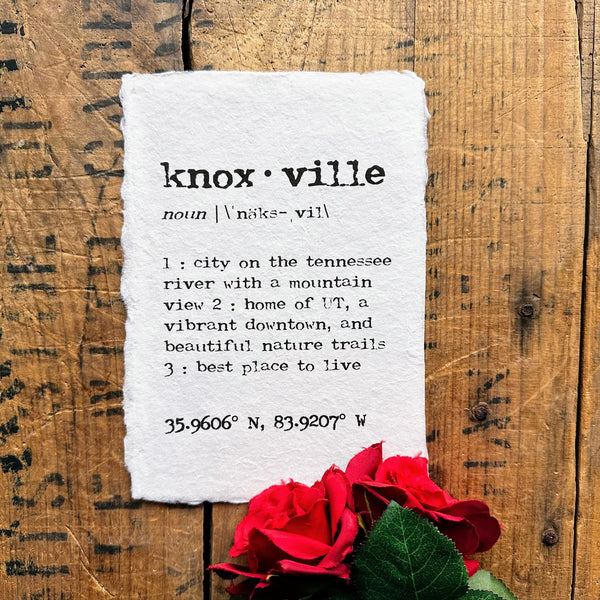 knox · ville
noun | \ˈnäks-ˌvil\
1 : city on the tennessee
river with a mountain
view 2 : home of UT, a
vibrant downtown, and
beautiful nature trails
3 : best place to live
35.9606° N, 83.9207° W